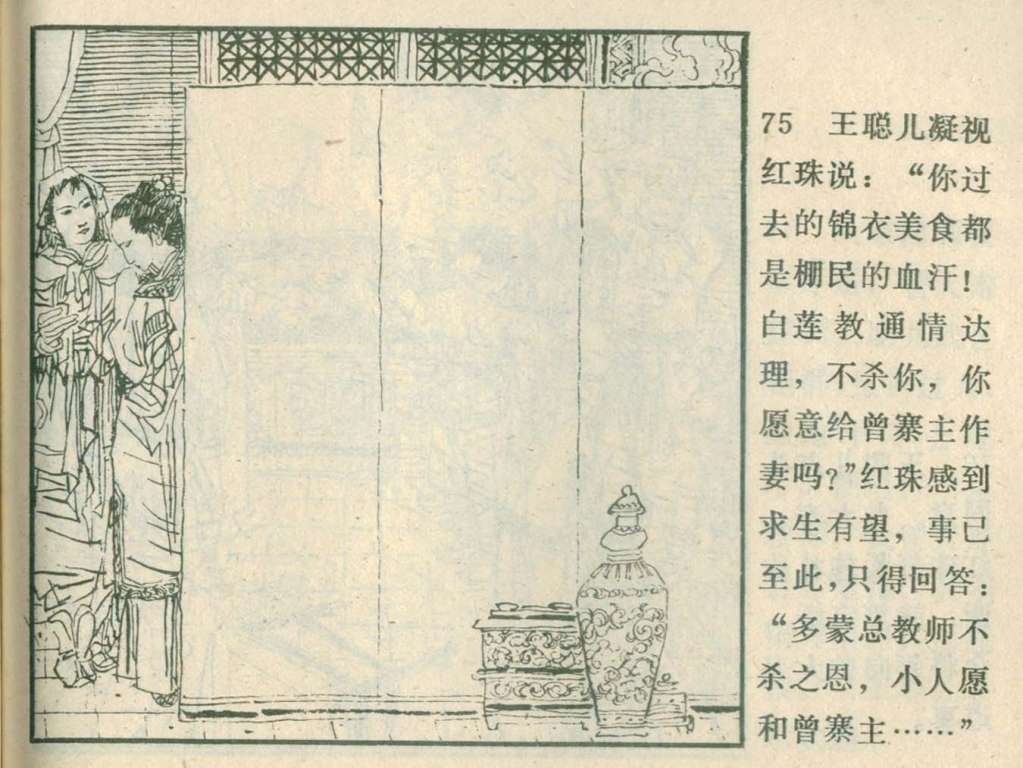 75 王聪儿凝视
红珠说：“你过
去的锦衣美食都
是棚民的血汗！
白莲教通情达
理，不杀你，你
愿意给曾寨主作
妻吗？”红珠感到
求生有望，事已
至此，只得回答：
“多蒙总教师不
杀之恩，小人愿
和曾寨主……”